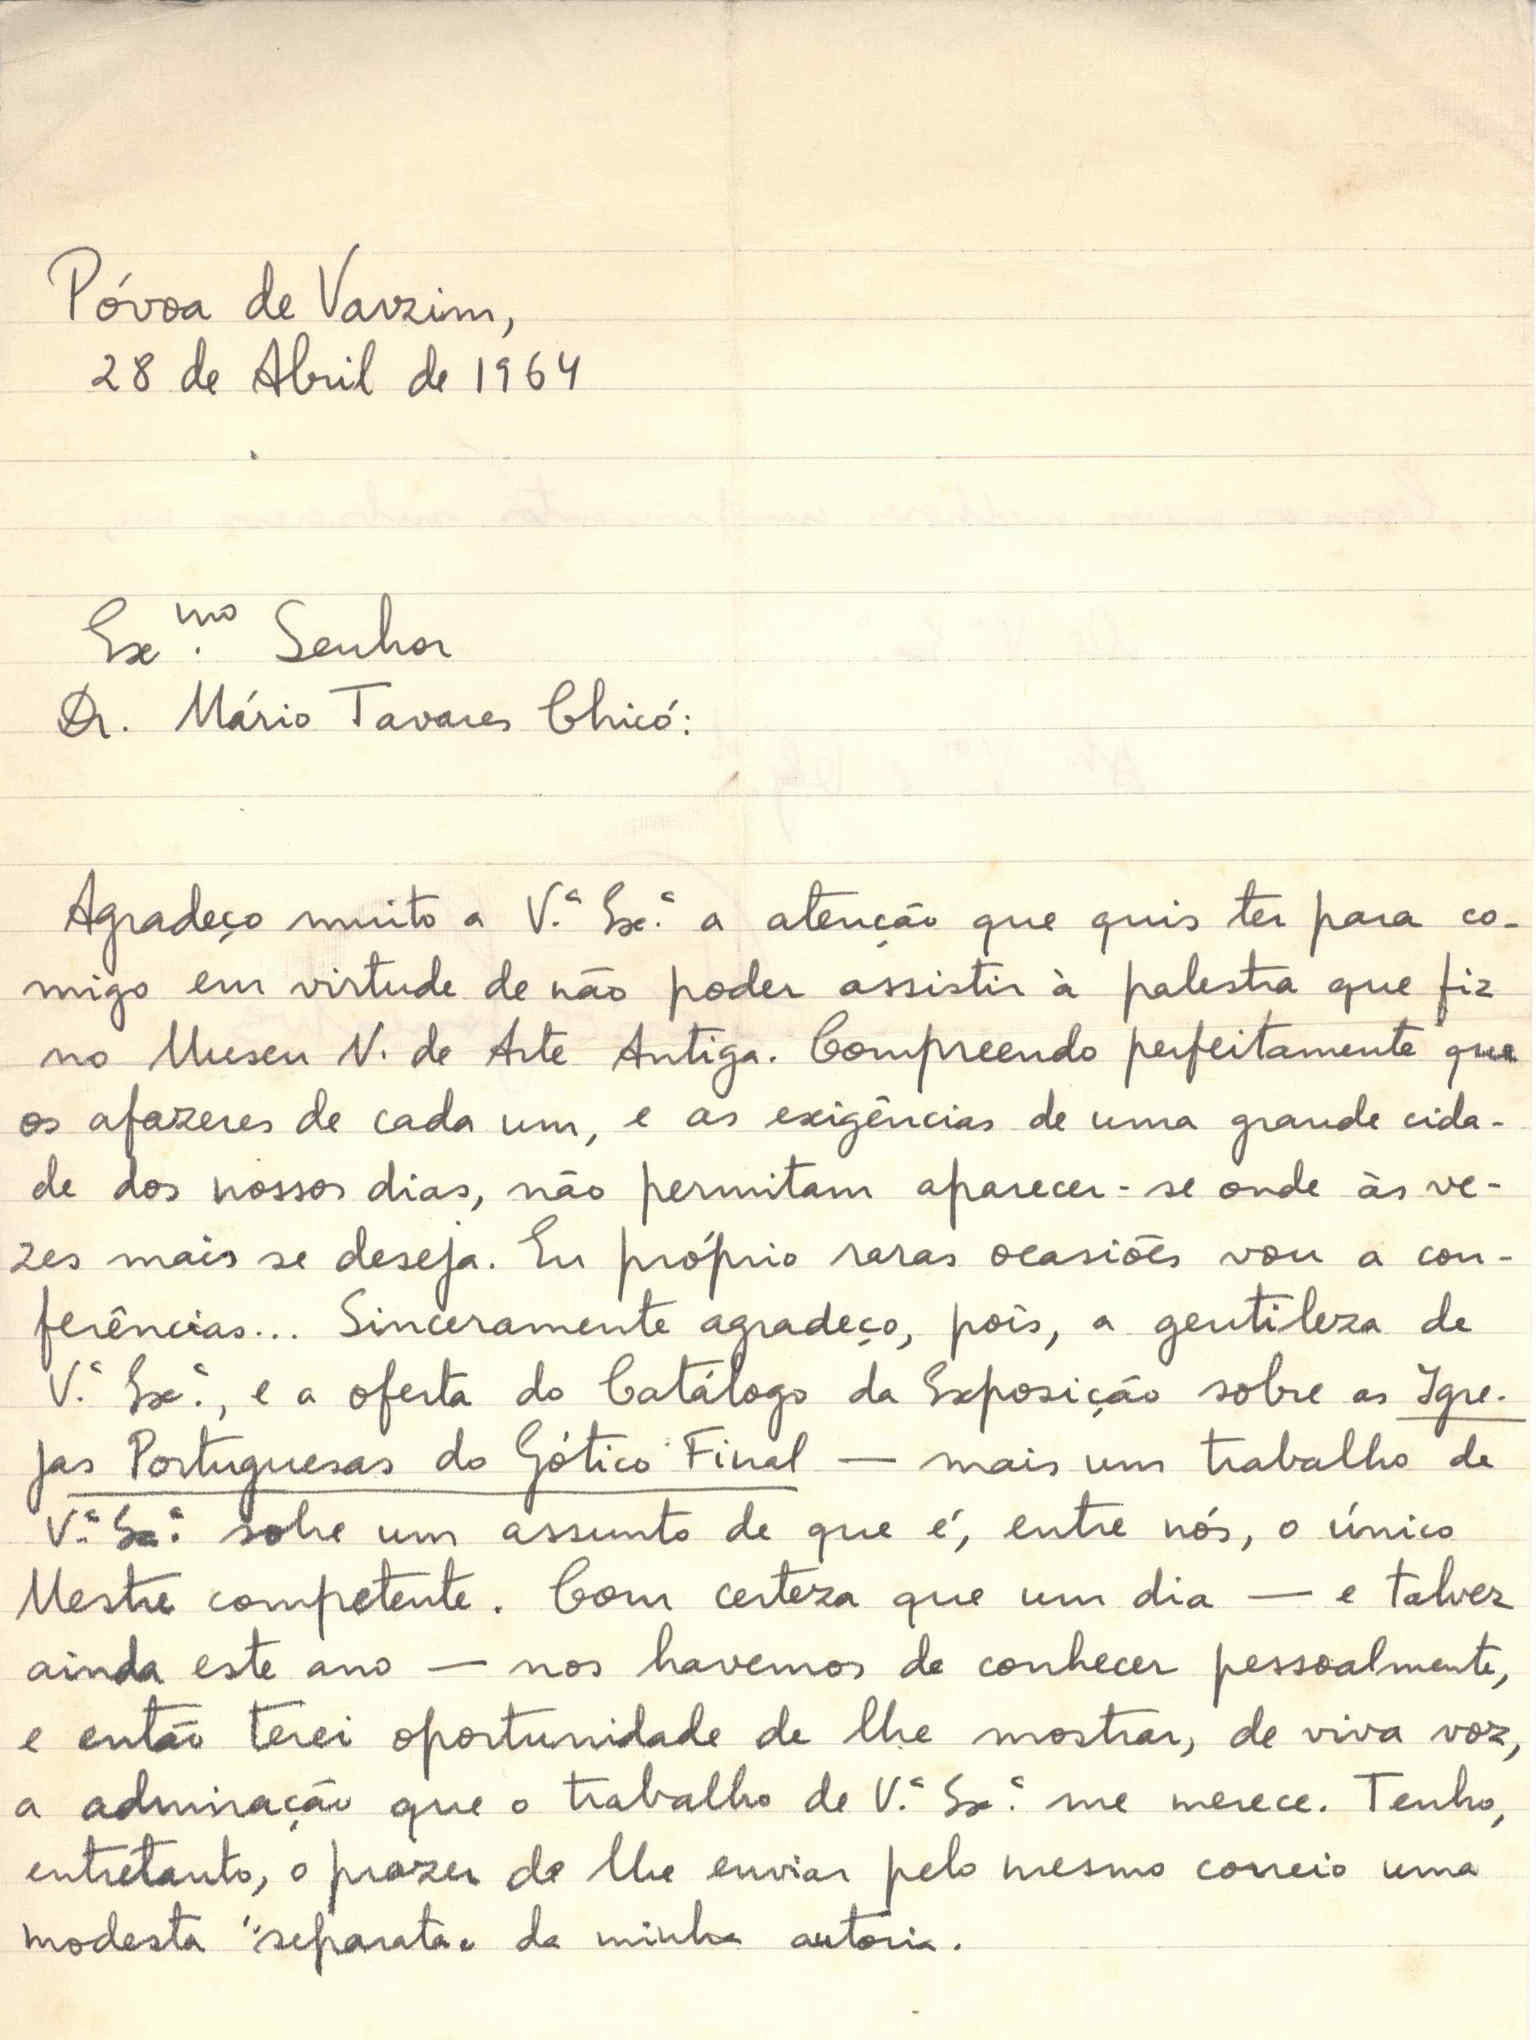 Póvoa de Varzim,
28 de Abril de 1964
Ex.mo Senhor
Dr. Mário Tavares Chicó:
Agradeço muito a V.ª Ex.ª a atenção que quis ter para co-
migo em virtude de não poder assistir à palestra que fiz
no Museu N. de Arte Antiga. Compreendo perfeitamente que
os afazeres de cada um, e as exigências de uma grande cida-
de dos nossos dias, não permitam aparecer-se onde às ve-
zes mais se deseja. Eu próprio raras ocasiões vou a con-
ferências... Sinceramente agradeço, pois, a gentileza de
V.ª Ex.ª, e a oferta do Catálogo da Exposição sobre as Igre-
jas Portuguesas do Gótico Final — mais um trabalho de
V.ª Ex.ª sobre um assunto de que é, entre nós, o único
Mestre competente. Com certeza que um dia — e talvez
ainda este ano — nos havemos de conhecer pessoalmente,
e então terei oportunidade de lhe mostrar, de viva voz,
a admiração que o trabalho de V.ª Ex.ª me merece. Tenho,
entretanto, o prazer de lhe enviar pelo mesmo correio uma
modesta "separata" da minha autoria.